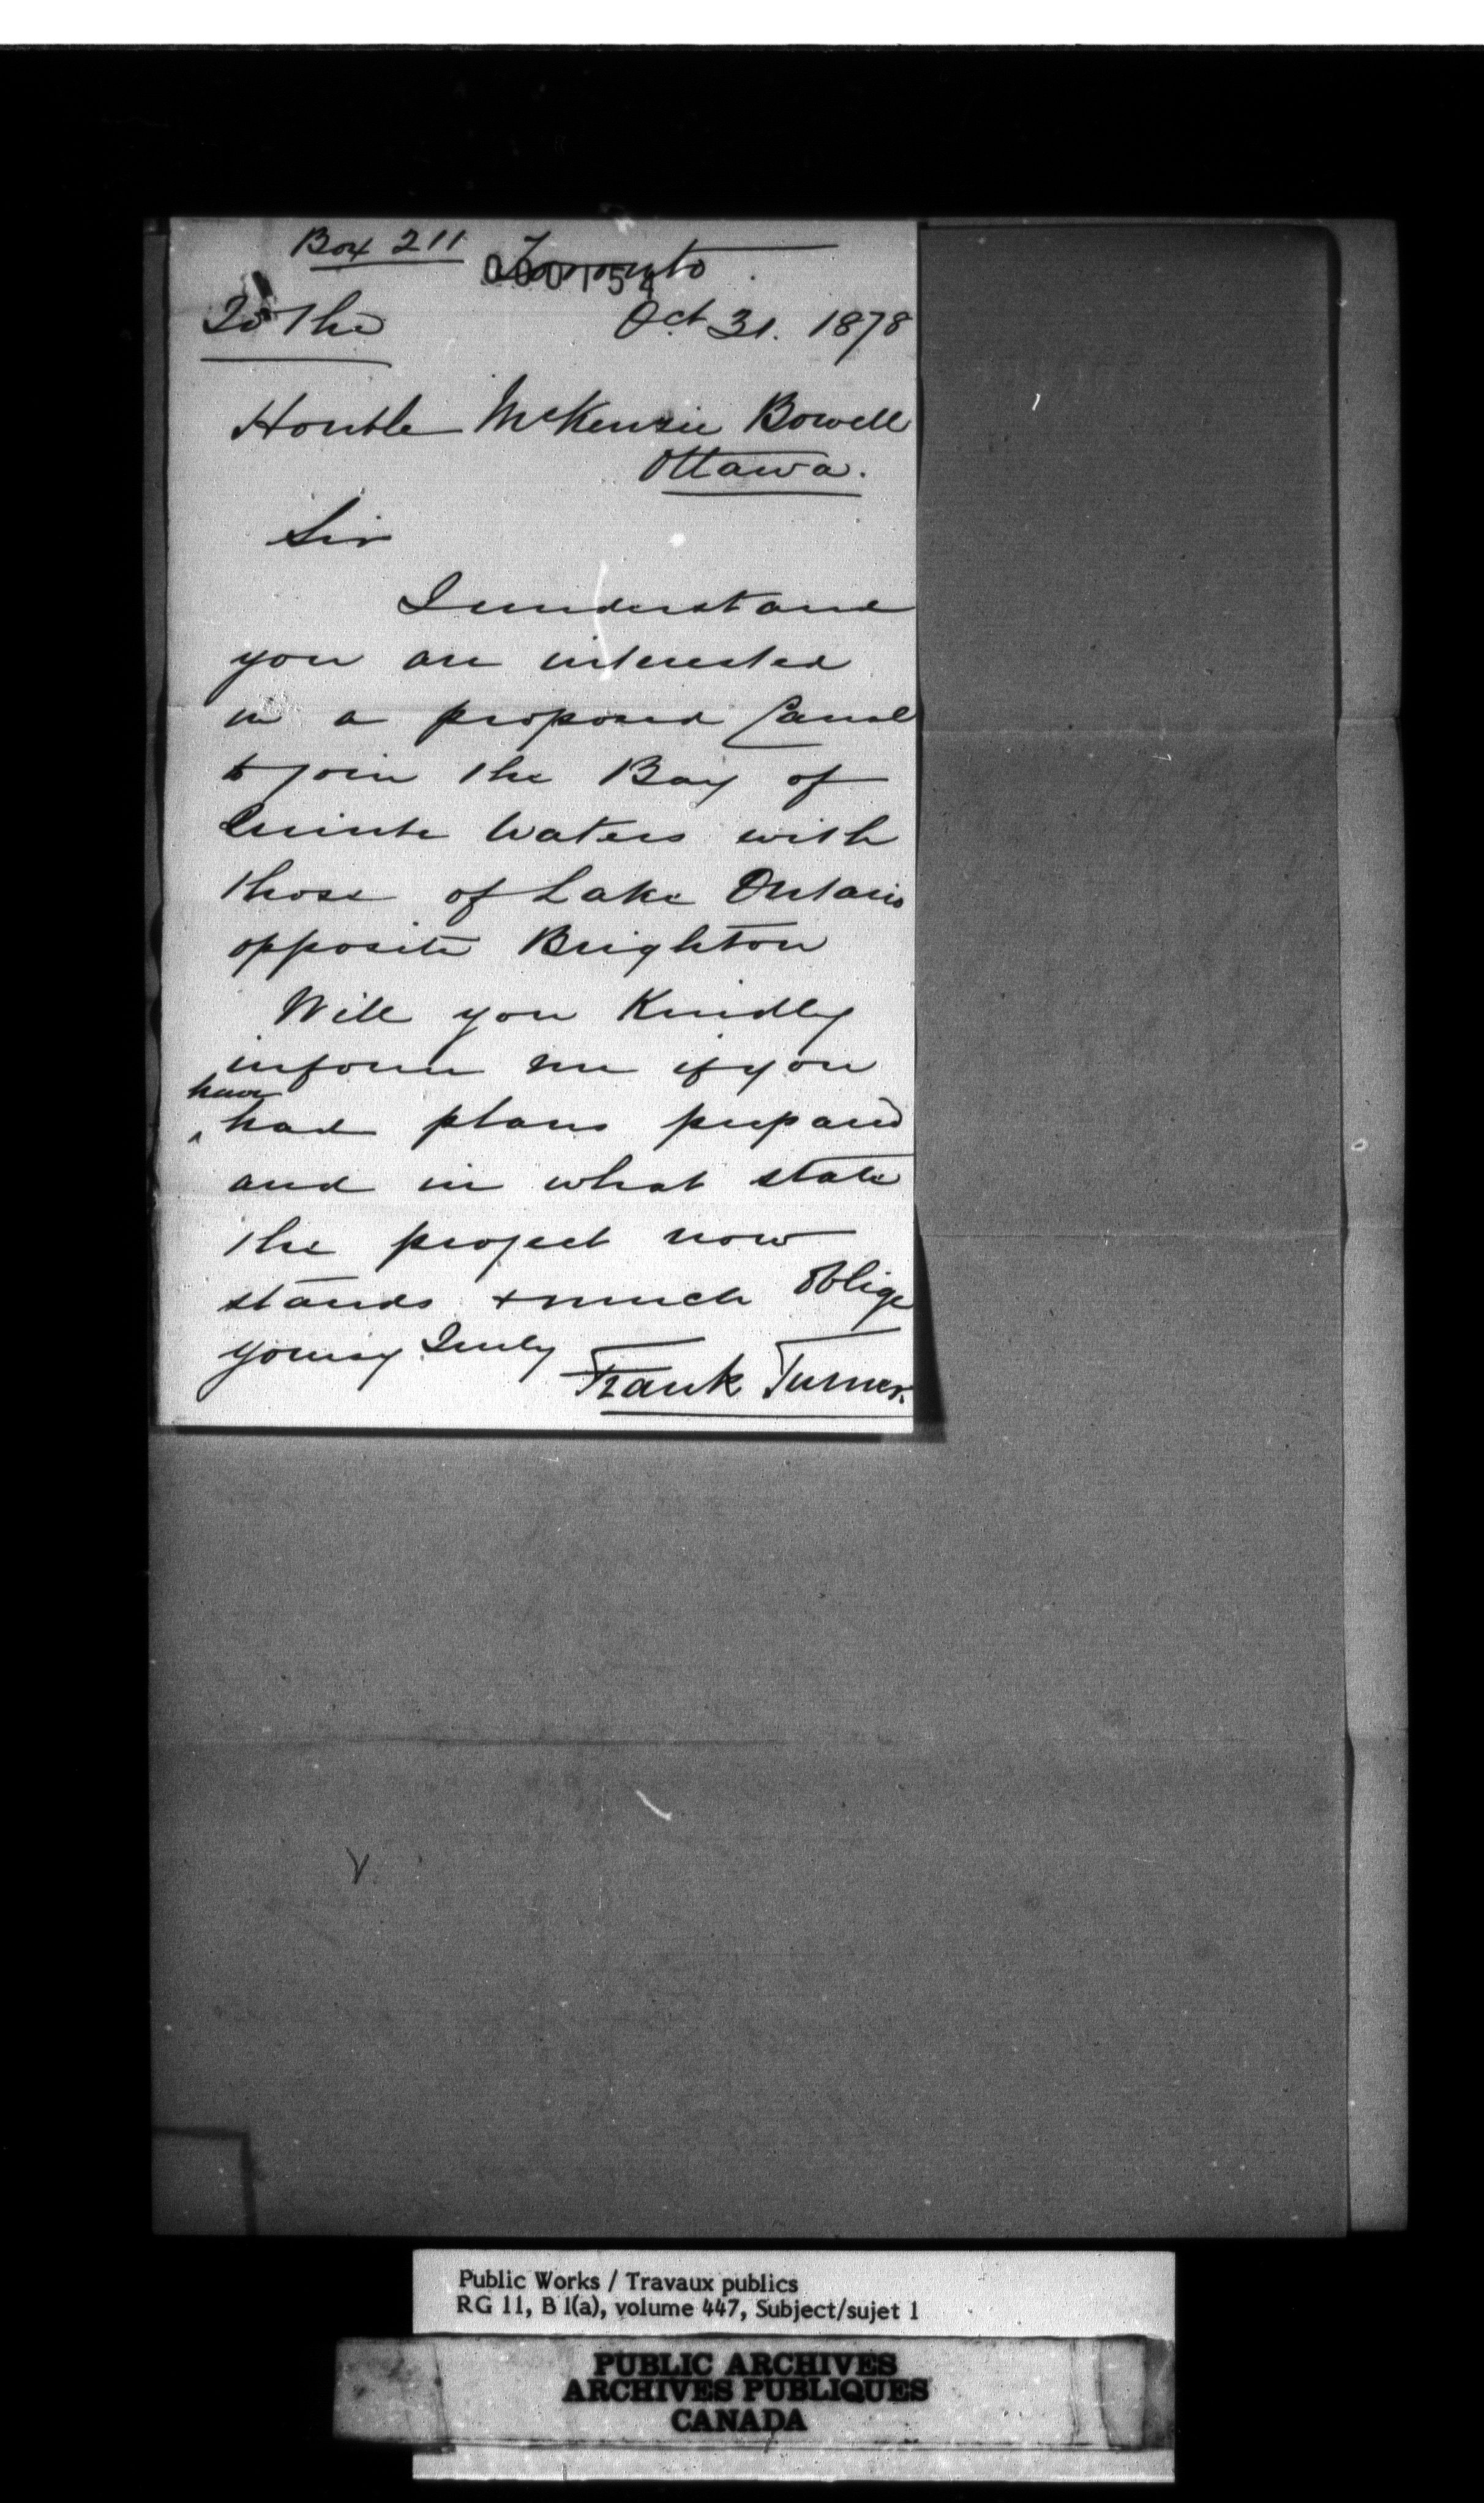 Box 211 Toronto
000154
To The Oct 31. 1878
Honble McKenzie Bowell
Ottawa.
Sir
I understand
you are interested
in a proposed Canal
to join the Bay of
Quinte Waters with
those of Lake Ontario
opposite Brighton
Will you Kindly
inform me if you
have
^ had plans prepared
and in what state
the project now
stands + much oblige
yours Truly
Frank Turner.
Public Works / Travaux publics
RG 11, B 1(a), volume 447, Subject/sujet 1
PUBLIC ARCHIVES
ARCHIVES PUBLIQUES
CANADA